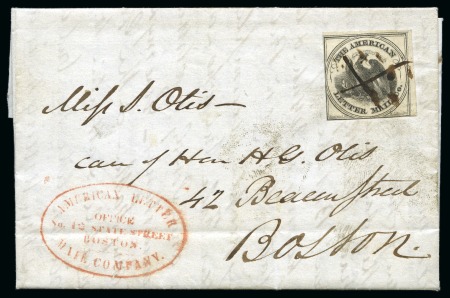 THE AMERICAN
LETTER MAIL CO.
Miss S. Otis—
care of Hon H G. Otis
42 Beacon Street
Boston.
AMERICAN LETTER
OFFICE
No. 12 STATE STREET
BOSTON.
MAIL COMPANY.